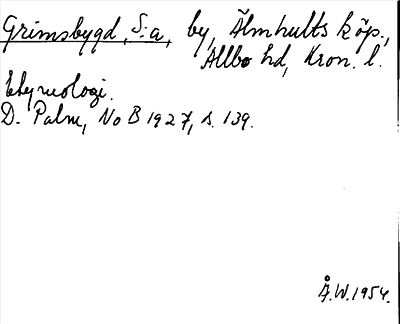 Grimsbygd, S:a, by, Älmhults köp.,
Allbo hd, Kron. l.
Etymologi.
D. Palm, NoB 1927, s. 139.
Å.W. 1954.